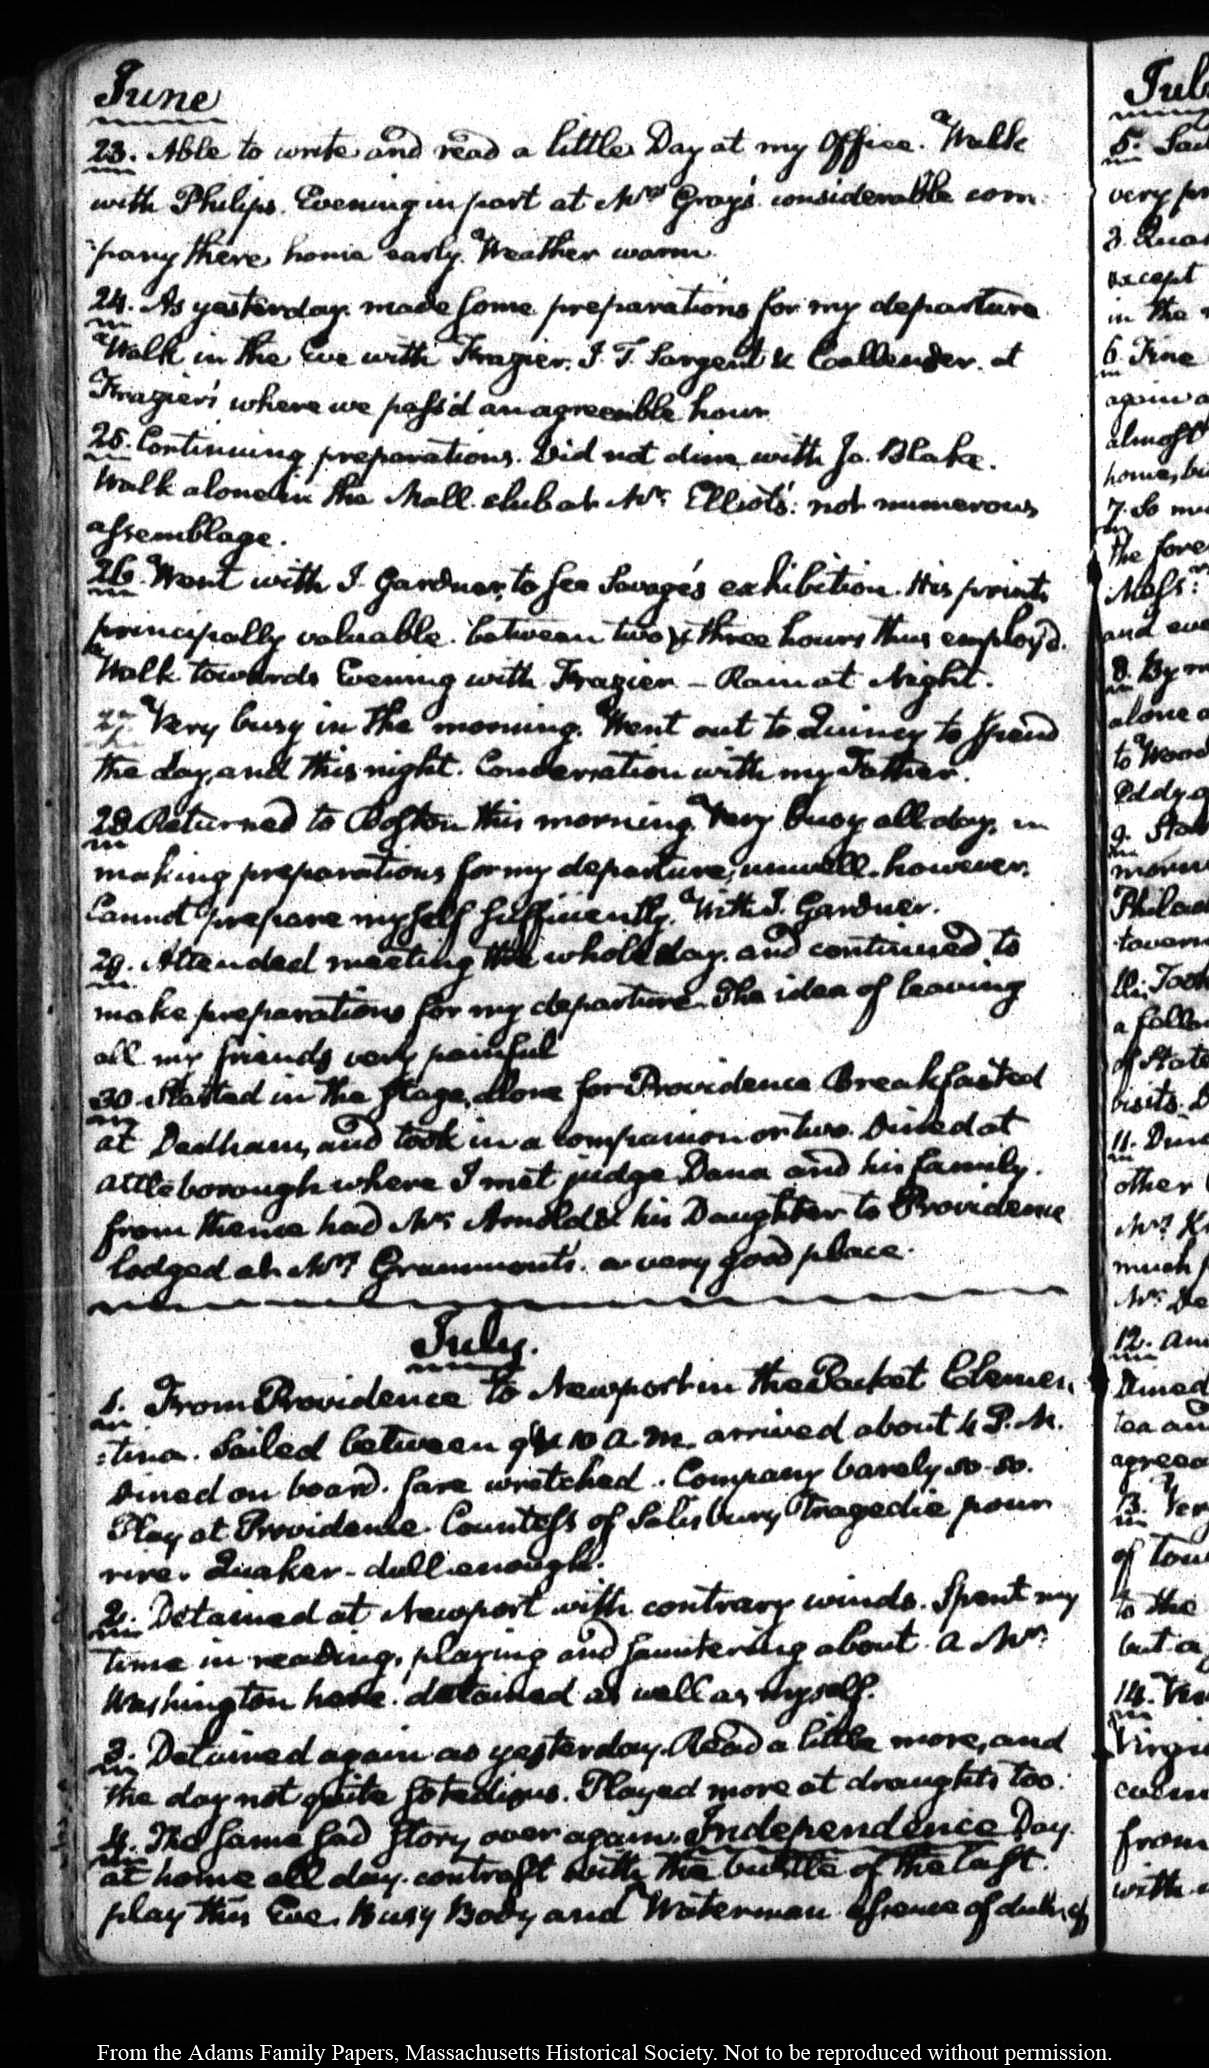 June
23. Able to write and read a little Day at my Office. Walk
with Philips. Evening in part at Mrs Gray's. considerable com
:pany there, home early. Weather warm.
24. As yesterday. made some preparations for my departure
Walk in the Eve with Frazier. J. T. Sargent & Callender. at
Frazier's where we pass'd an agreeable hour
25. Continuing preparations. Did not dine with Jo. Blake.
Walk alone in the Mall. club at Mr. Elliot's: not numerous
assemblage.
26. Went with J. Gardner, to see Savage's exhibition. His prints
principally valuable. between two & three hours thus employ'd.
Walk towards Evening with Frazier - Rain at Night.
27. Very busy in the morning. Went out to Quincy to spend
the day, and this night. Conversation with my Father.
28. Returned to Boston this morning. Very busy all day, in
making preparations for my departure; unwell. however.
Cannot prepare myself sufficiently. With J. Gardner.
29. Attended meeting the whole day. and continued to
make preparations for my departure. The idea of leaving
all my friends very painful
30. Started in the stage, alone for Providence Breakfasted
at Dedham, and took in a companion or two. Dined at
Attleborough where I met judge Dana and his family.
from thence had Mr. Arnold & his Daughter to Providence
lodged at Mrs Grammont's. a very good place.
July.
1. From Providence to Newport in the Packet Clemen
:tina. Sailed between 9 & 10 A.M. arrived about 4 P.M.
Dined on board. fare wretched. Company barely so-so.
Play at Providence. Countess of Salisbury Tragedie pour
rire. Quaker - dull enough.
2. Detained at Newport with contrary winds. Spent my
time in reading, playing and sauntering about. A Mr.
Washington here. detained as well as myself.
3. Detained again as yesterday. Read a little more, and
the day not quite so tedious. Played more at draughts too.
4. The same sad story over again. Independence Day
at home all day. contrast with the bustle of the last.
play this Eve. Busy Body and Waterman essence of
Jul
From the Adams Family Papers, Massachusetts Historical Society. Not to be reproduced without permission.